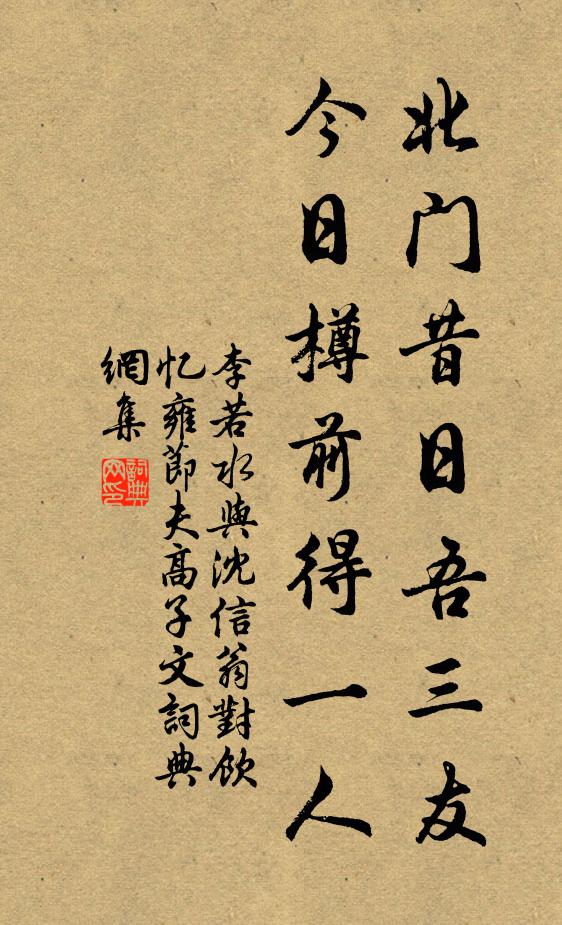 北门昔日吾三友
今日樽前得一人
李若水與沈信翁對飲
忆雍節夫高子文詞典
網集
詞典
网印